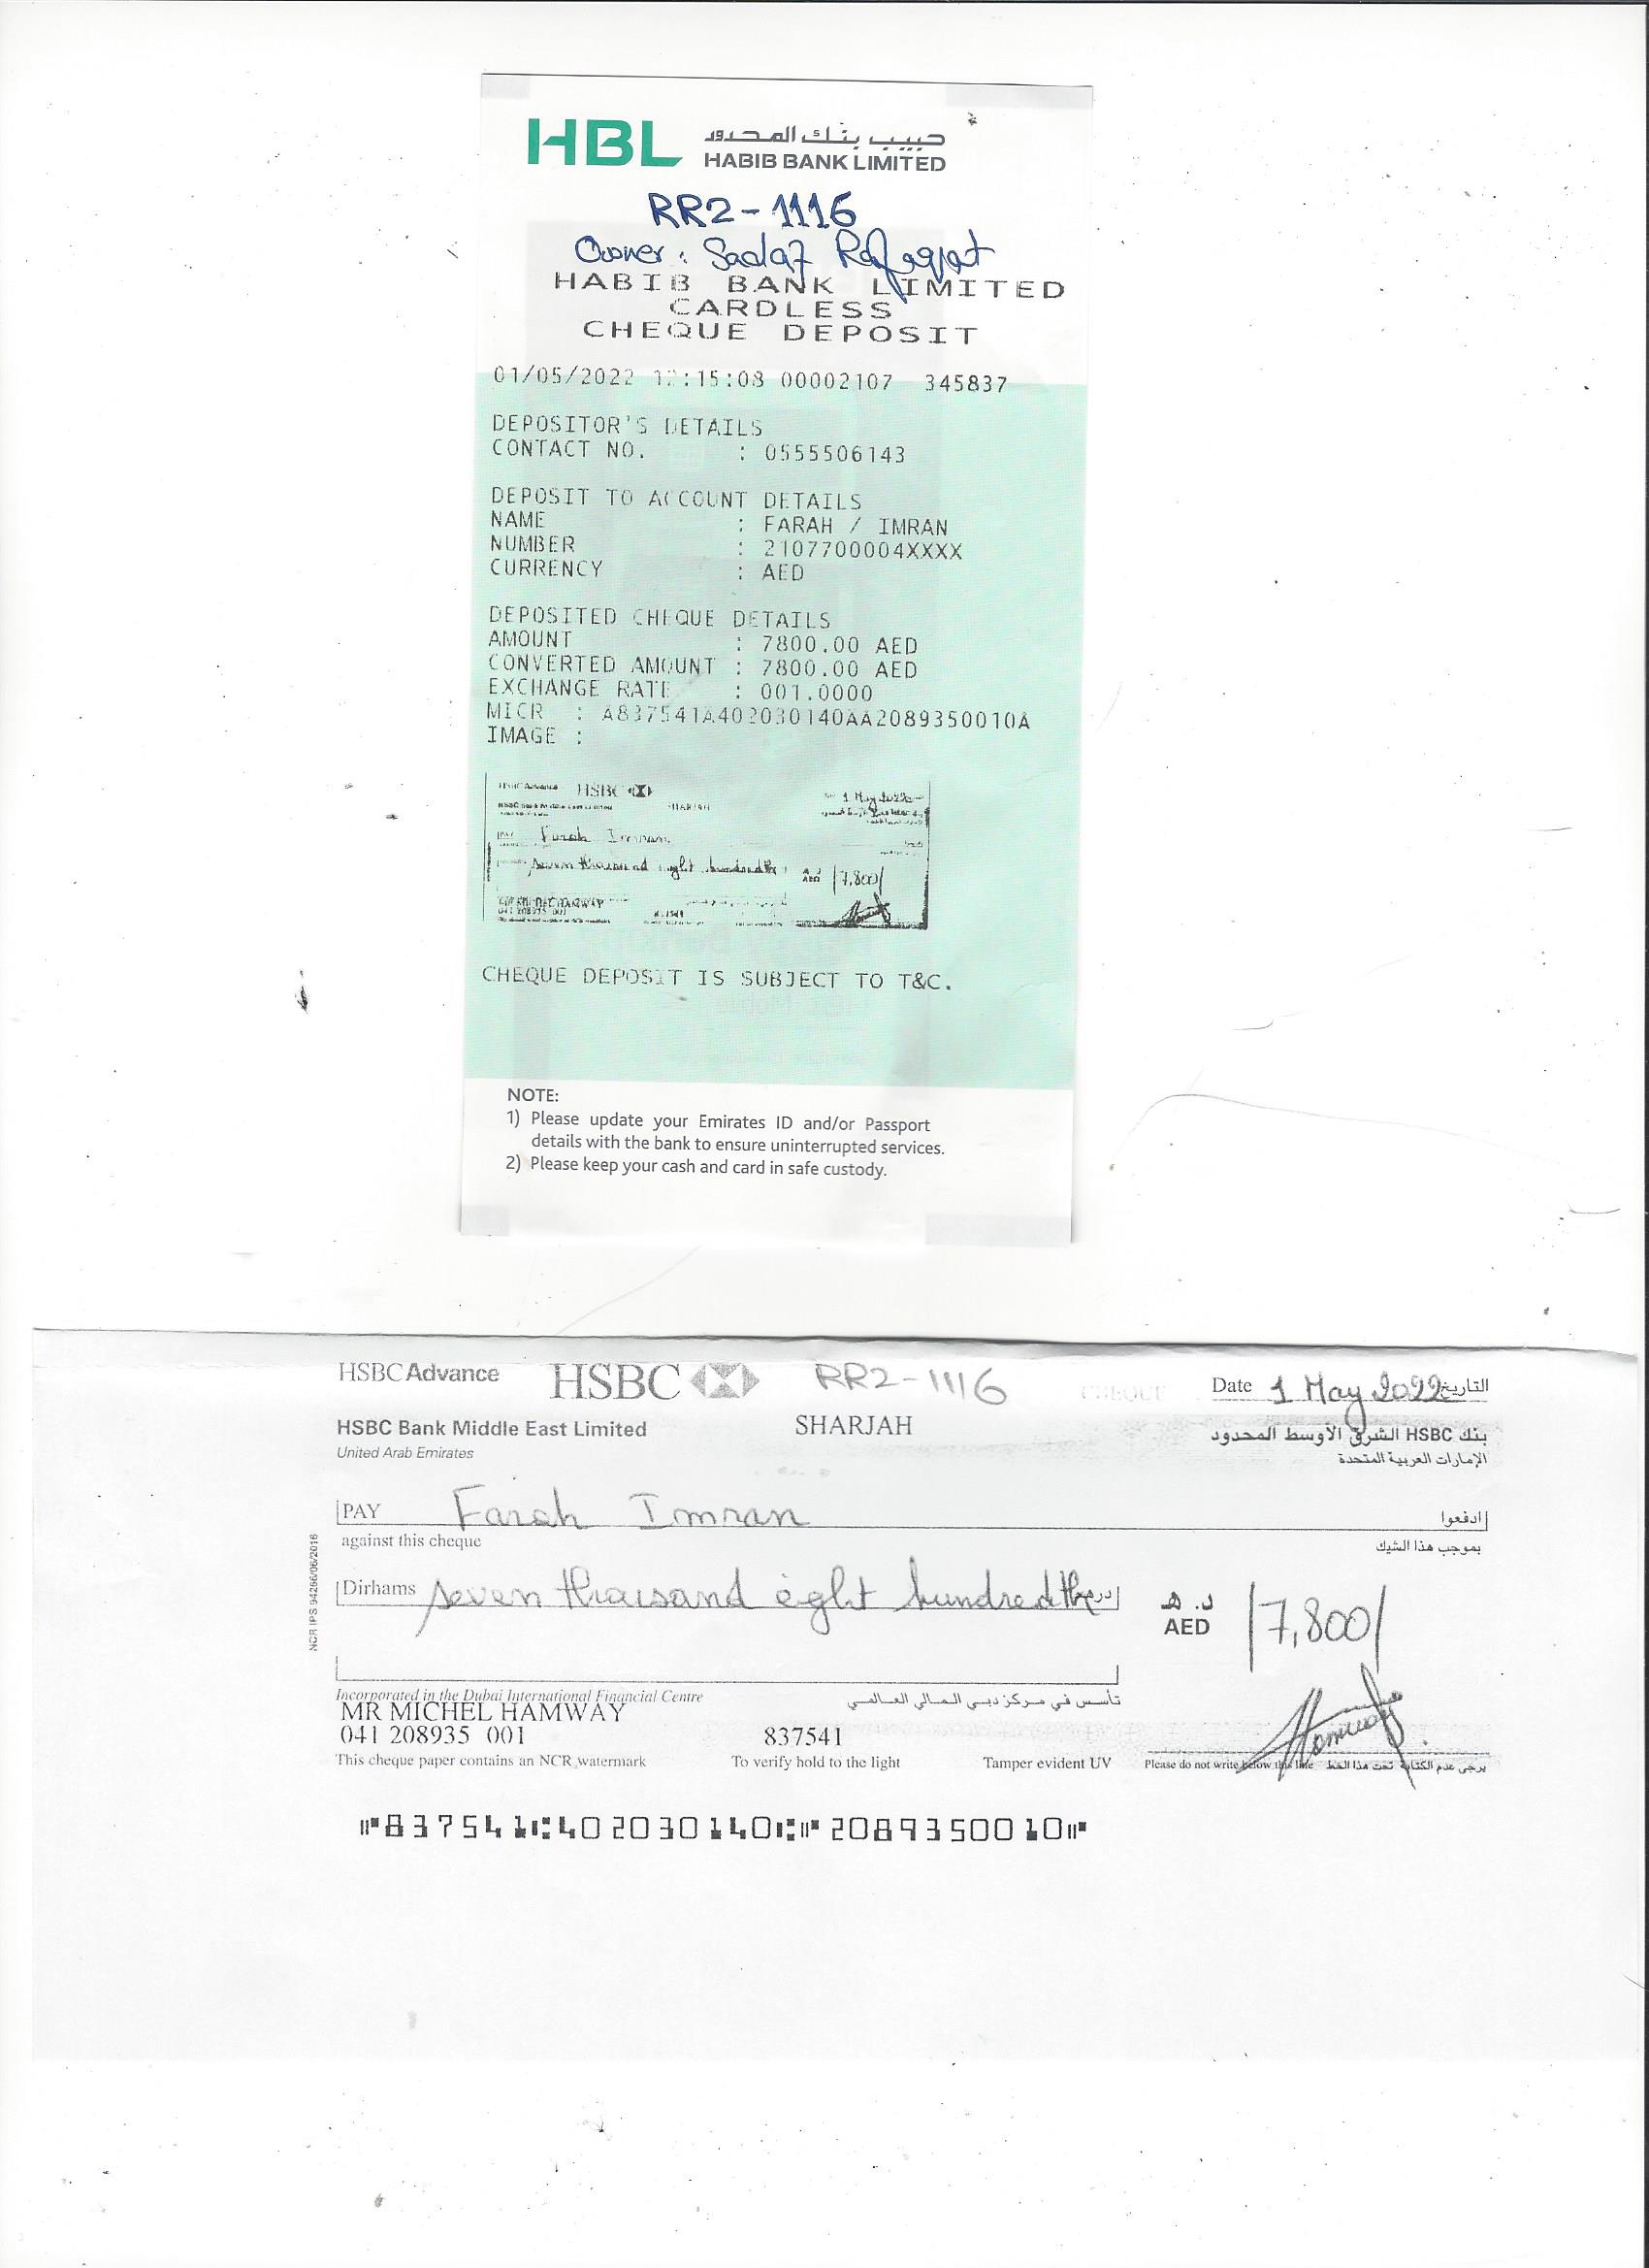 HBL حبيب بنك المحدود
HABIB BANK LIMITED
RR2-1116
Owner: Sadaf Rafaqat
HABIB BANK LIMITED
CARDLESS
CHEQUE DEPOSIT
01/05/2022 12:15:08 00002107 345837
DEPOSITOR'S DETAILS
CONTACT NO. : 0555506143
DEPOSIT TO ACCOUNT DETAILS
NAME : FARAH / IMRAN
NUMBER : 2107700004XXXX
CURRENCY : AED
DEPOSITED CHEQUE DETAILS
AMOUNT : 7800.00 AED
CONVERTED AMOUNT : 7800.00 AED
EXCHANGE RATE : 001.0000
MICR : A837541A402030140AA2089350010A
IMAGE :
HSBC Advance HSBC 1 May 2022
SHARJAH
Farah Imran
seven thousand eight hundred
AED /7,800/
041 208935 001
CHEQUE DEPOSIT IS SUBJECT TO T&C.
NOTE:
1) Please update your Emirates ID and/or Passport
details with the bank to ensure uninterrupted services.
2) Please keep your cash and card in safe custody.
HSBC Advance HSBC RR2-1116 CHEQUE Date 1 May 2022 التاريخ
HSBC Bank Middle East Limited SHARJAH بنك HSBC الشرق الأوسط المحدود
United Arab Emirates الإمارات العربية المتحدة
PAY Farah Imran ادفعوا
against this cheque بموجب هذا الشيك
NCR IPS 94266/06/2016
Dirhams seven thousand eght hundred درهم
د.هـ AED /7,800/
Incorporated in the Dubai International Financial Centre تأسس في مركز دبي المالي العالمي
MR MICHEL HAMWAY
041 208935 001 837541
Hamway
This cheque paper contains an NCR watermark To verify hold to the light Tamper evident UV Please do not write below this line يرجى عدم الكتابة تحت هذا الخط
⑈837541⑆402030140⑆⑈2089350010⑈